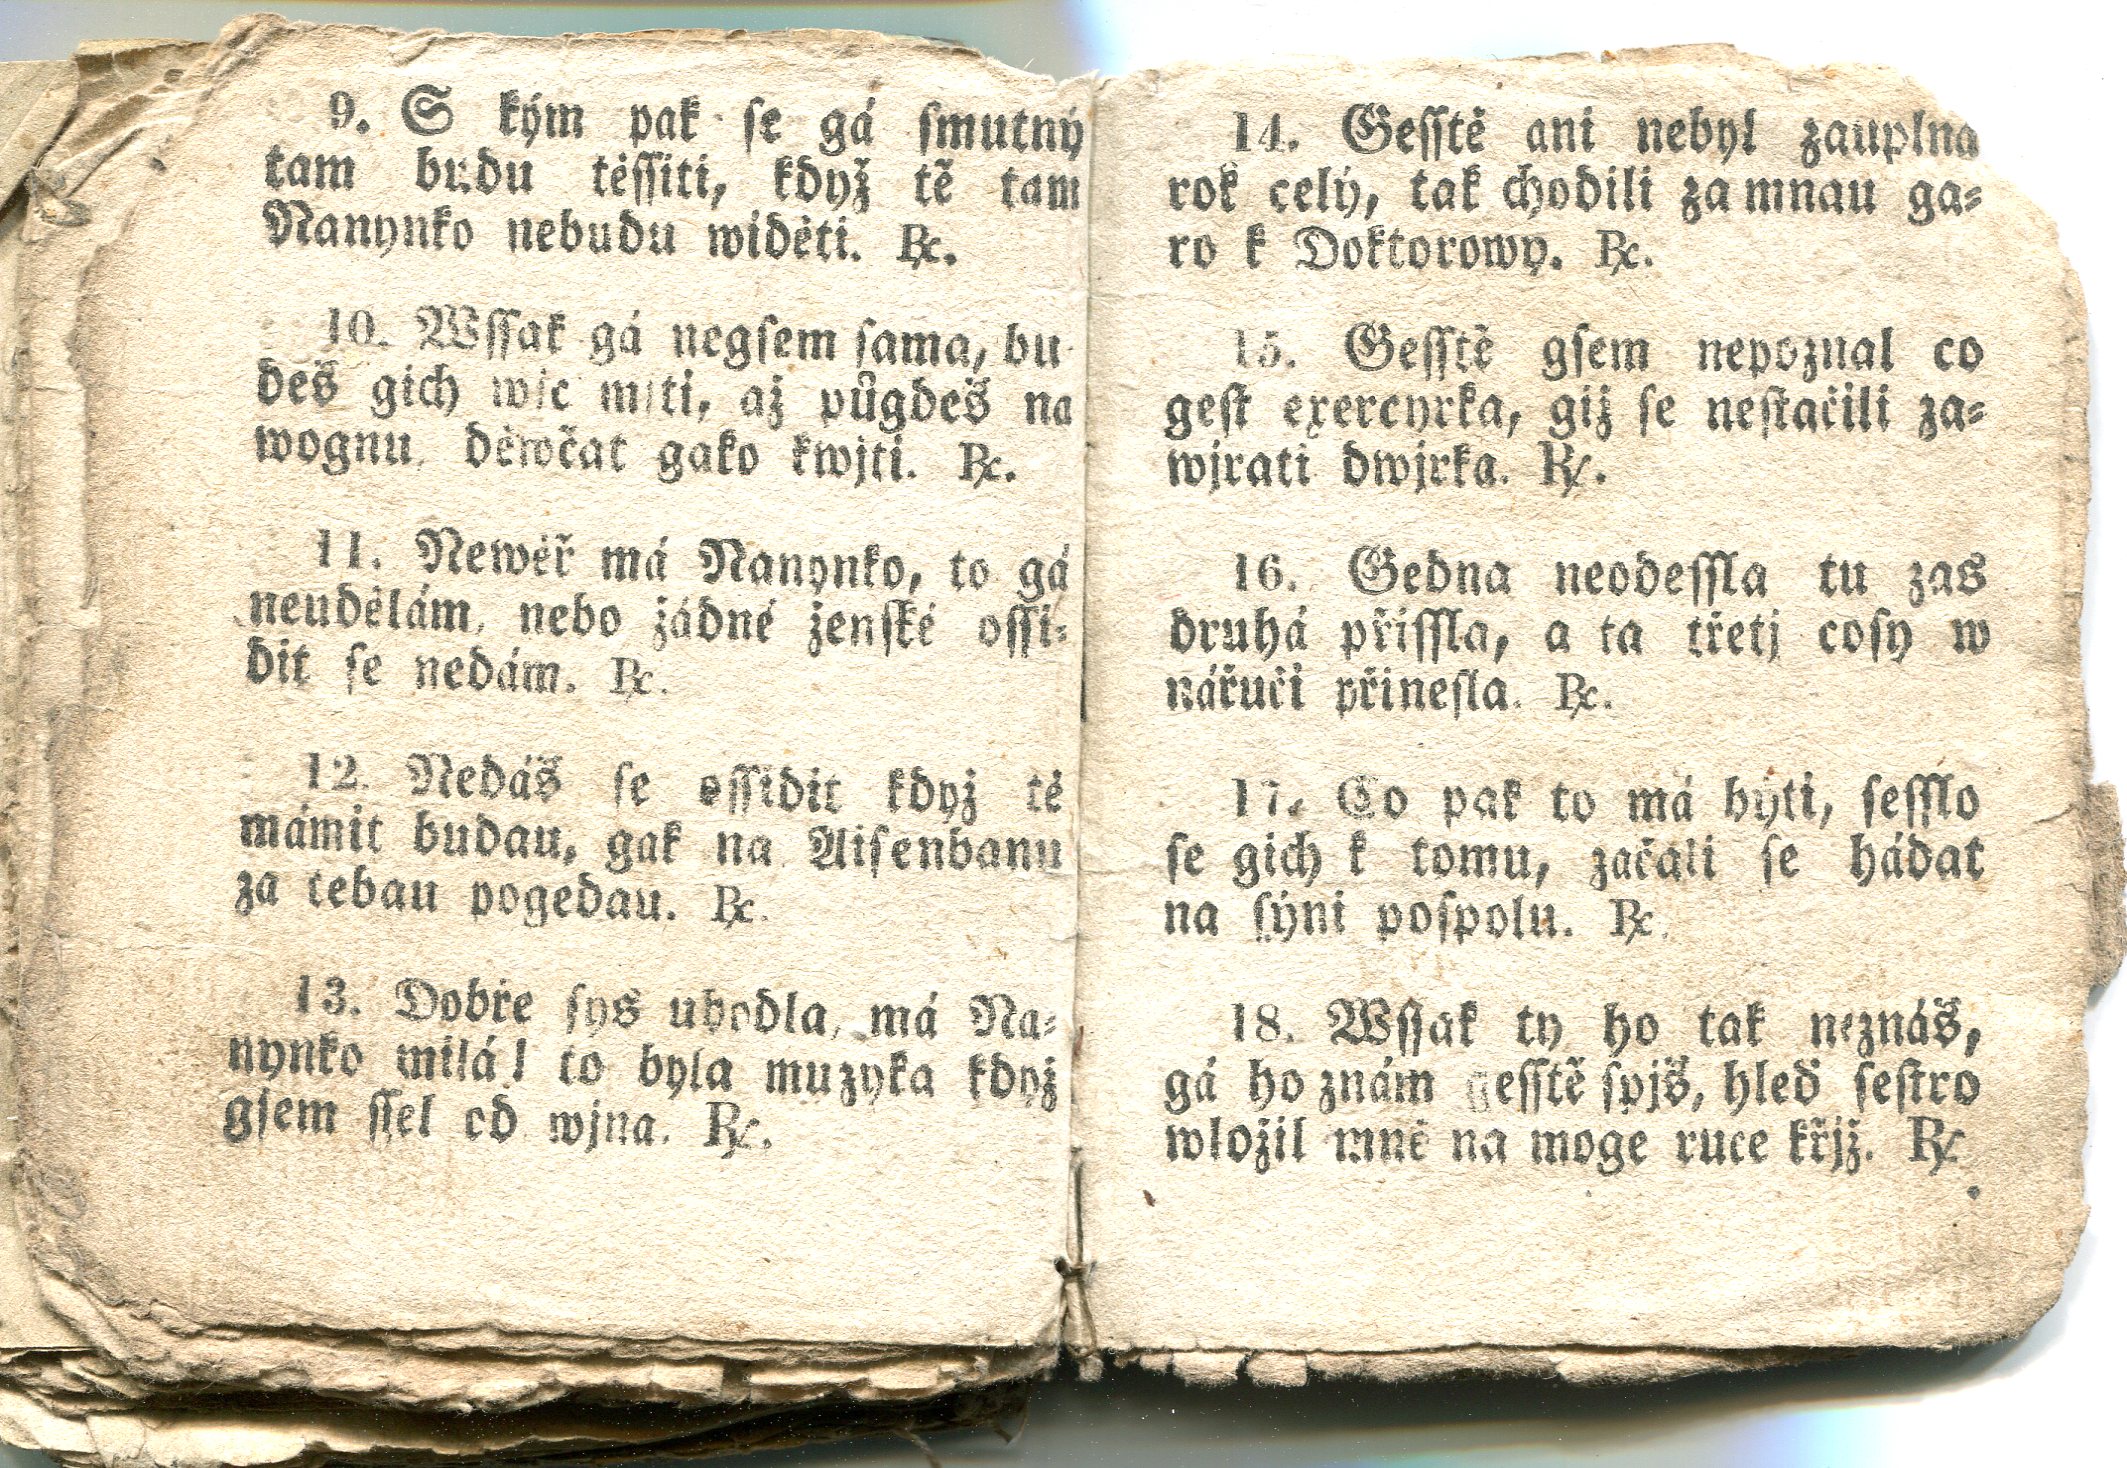 9. S kým pak se gá smutný
tam budu těssiti, když tě tam
Nanynko nebudu widěti. Rc.
10. Wssak gá negsem sama, bu
deš gich wjc mjti, až půgdeš na
wognu, děwčat gako kwjti. Rc.
11. Newěř má Nanynko, to gá
neudělám, nebo žádné ženské ossi-
dit se nedám. Rc.
12. Nedáš se ossidit když tě
mámit budau, gak na Aisenbanu
za tebau pogedau. Rc.
13. Dobře sys uhodla, má Na-
nynko milá! to byla muzyka když
gsem ssel od wjna. Rc.
14. Gesstě ani nebyl zauplna
rok celý, tak chodili za mnau ga-
ro k Doktorowy. Rc.
15. Gesstě gsem nepoznal co
gest exercyrka, giž se nestačili za-
wjrati dwjrka. Rc.
16. Gedna neodessla tu zas
druhá přissla, a ta třetj cosy w
náručí přinesla. Rc.
17. Co pak to má býti, sesslo
se gich k tomu, začali se hádat
na sýni pospolu. Rc.
18. Wssak ty ho tak neznáš,
gá ho znám gesstě spjš, hleď sestro
wložil mně na moge ruce křjž. Rc